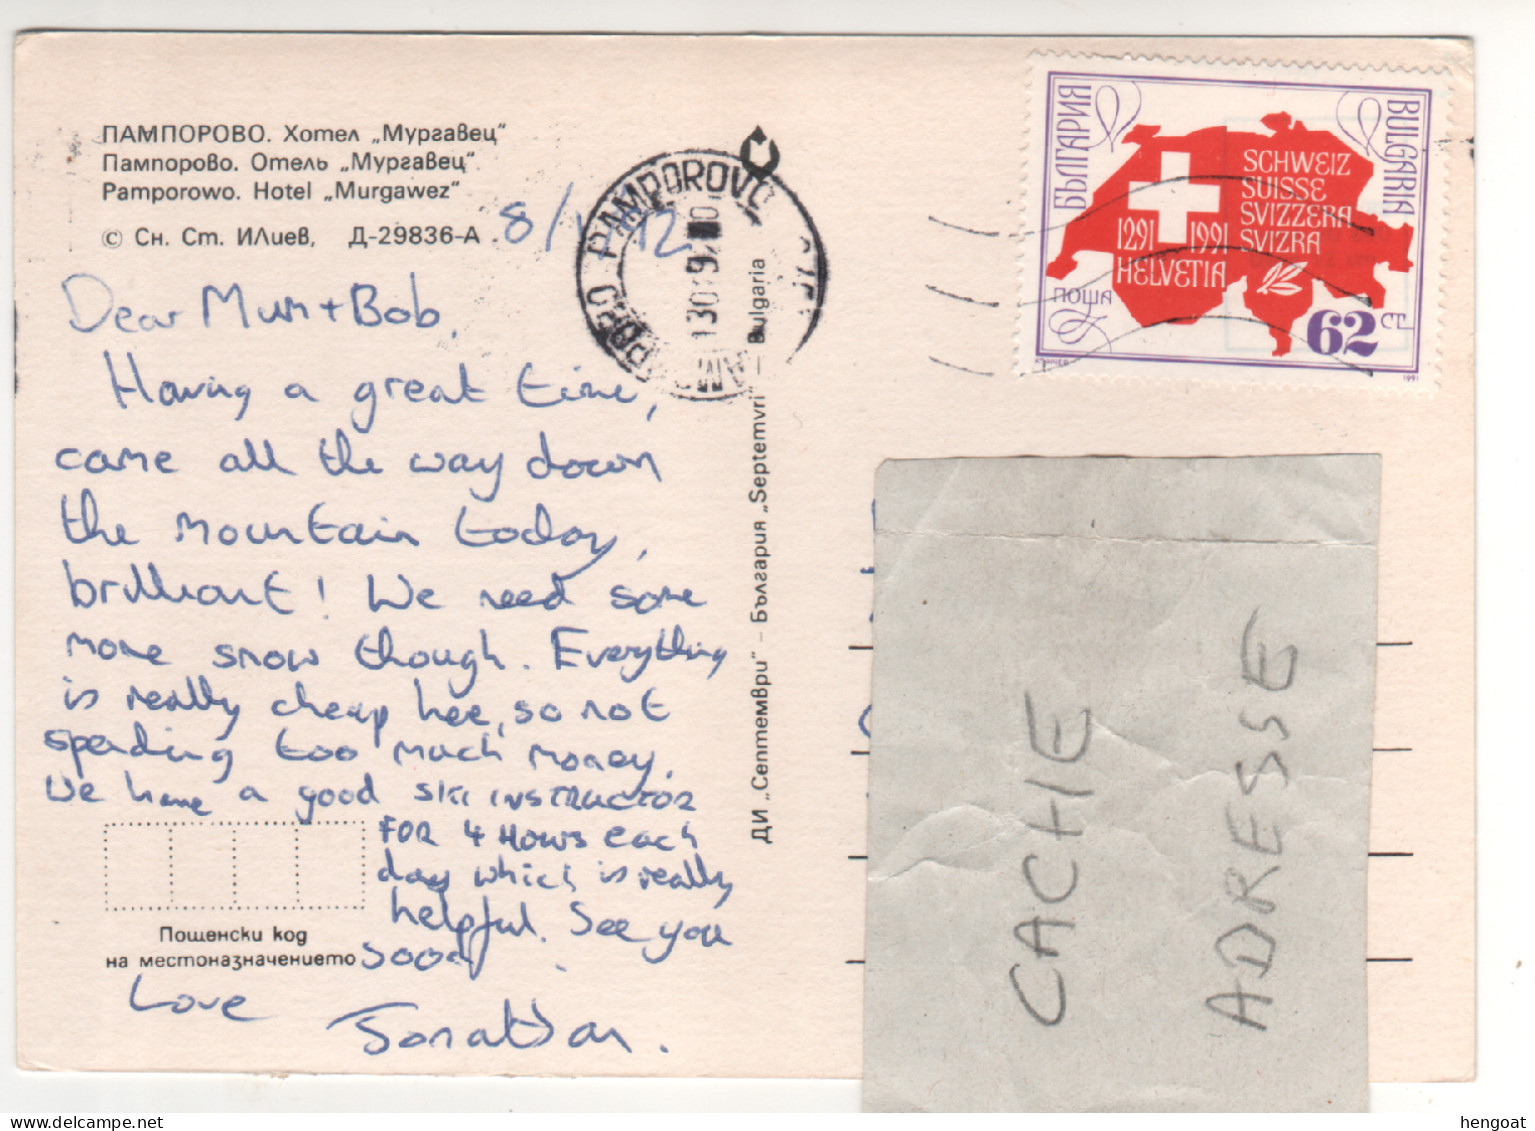 ПАМПОРОВО. Хотел „Мургавец"
Пампорово. Отель „Мургавец".
Pamporowo. Hotel „Murgawez"
© Сн. Ст. Илиев, Д-29836-А
Dear Mum + Bob,
Having a great time,
came all the way down
the mountain today,
brilliant! We need some
more snow though. Everything
is really cheap here, so not
spending too much money.
We have a good SKI INSTRUCTOR
FOR 4 HOURS each
day which is really
helpful. See you
soon.
Love
Jonathan.
Пощенски код
на местоназначението
ДИ „Септември" – България „Septemvri" – Bulgaria
PAMPOROVO
БЪЛГАРИЯ
BULGARIA
SCHWEIZ
SUISSE
SVIZZERA
SVIZRA
1291 1991
HELVETIA
ПОЩА
62 СТ.
1991
CACHE
ADRESSE
hengoat